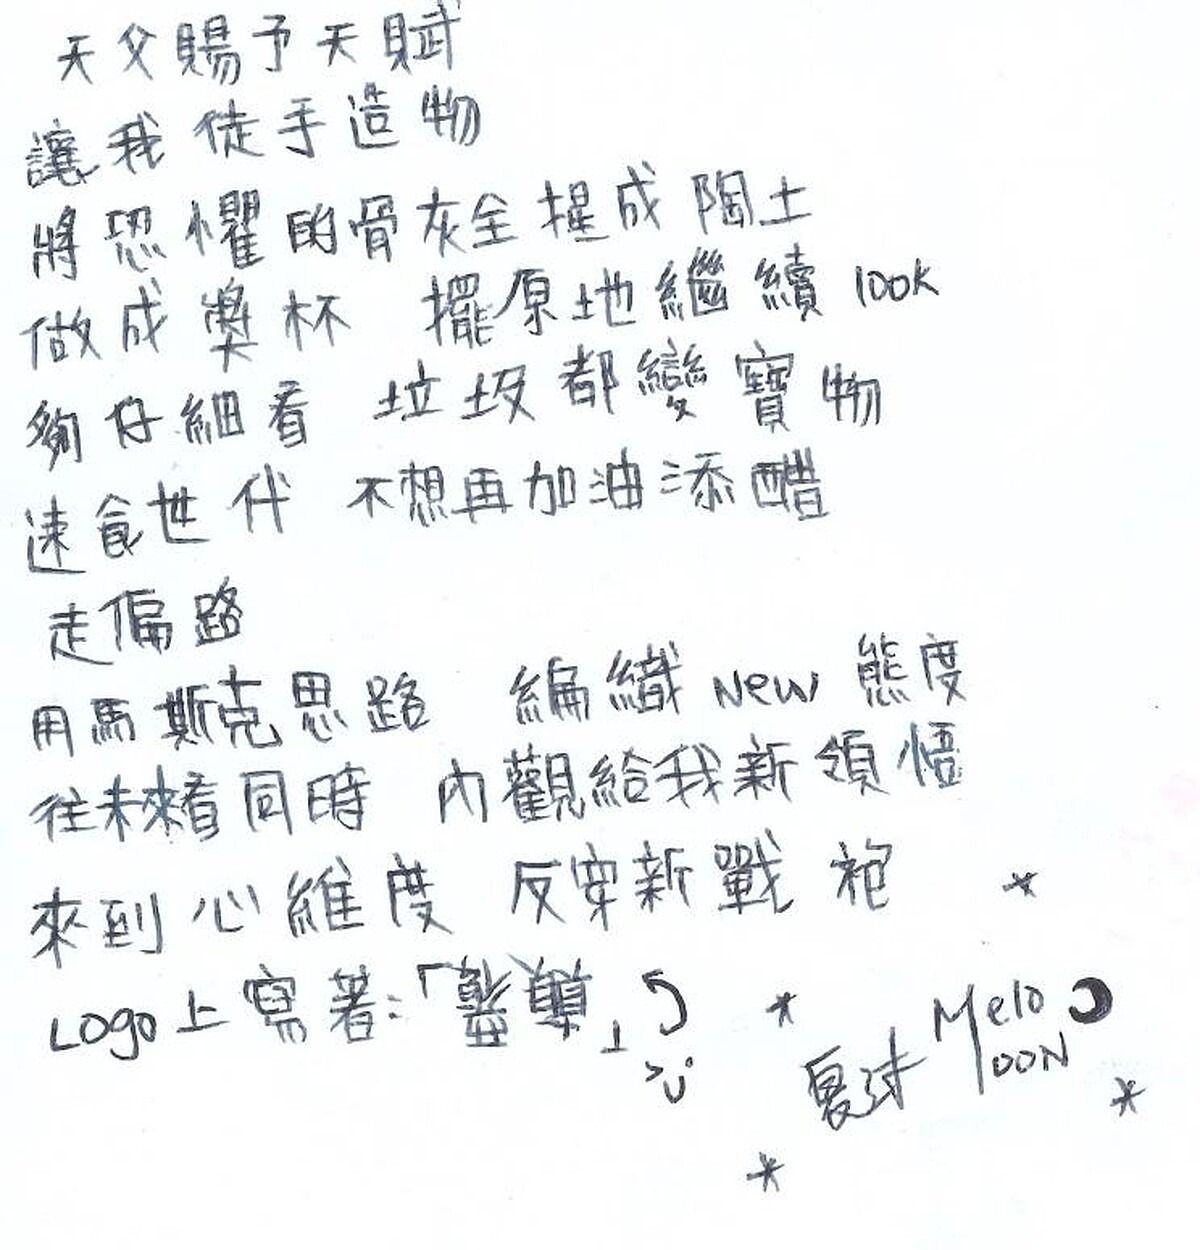 天父賜予天賦
讓我徒手造物
將恐懼的骨灰全捏成陶土
做成獎杯 擺原地繼續 look
夠仔細看 垃圾都變寶物
速食世代 不想再加油添醋
走偏路
用馬斯克思路 編織 New 態度
往未來看同時 內觀給我新領悟
來到心維度 反穿新戰袍
Logo上寫著:「
Melo
MOON